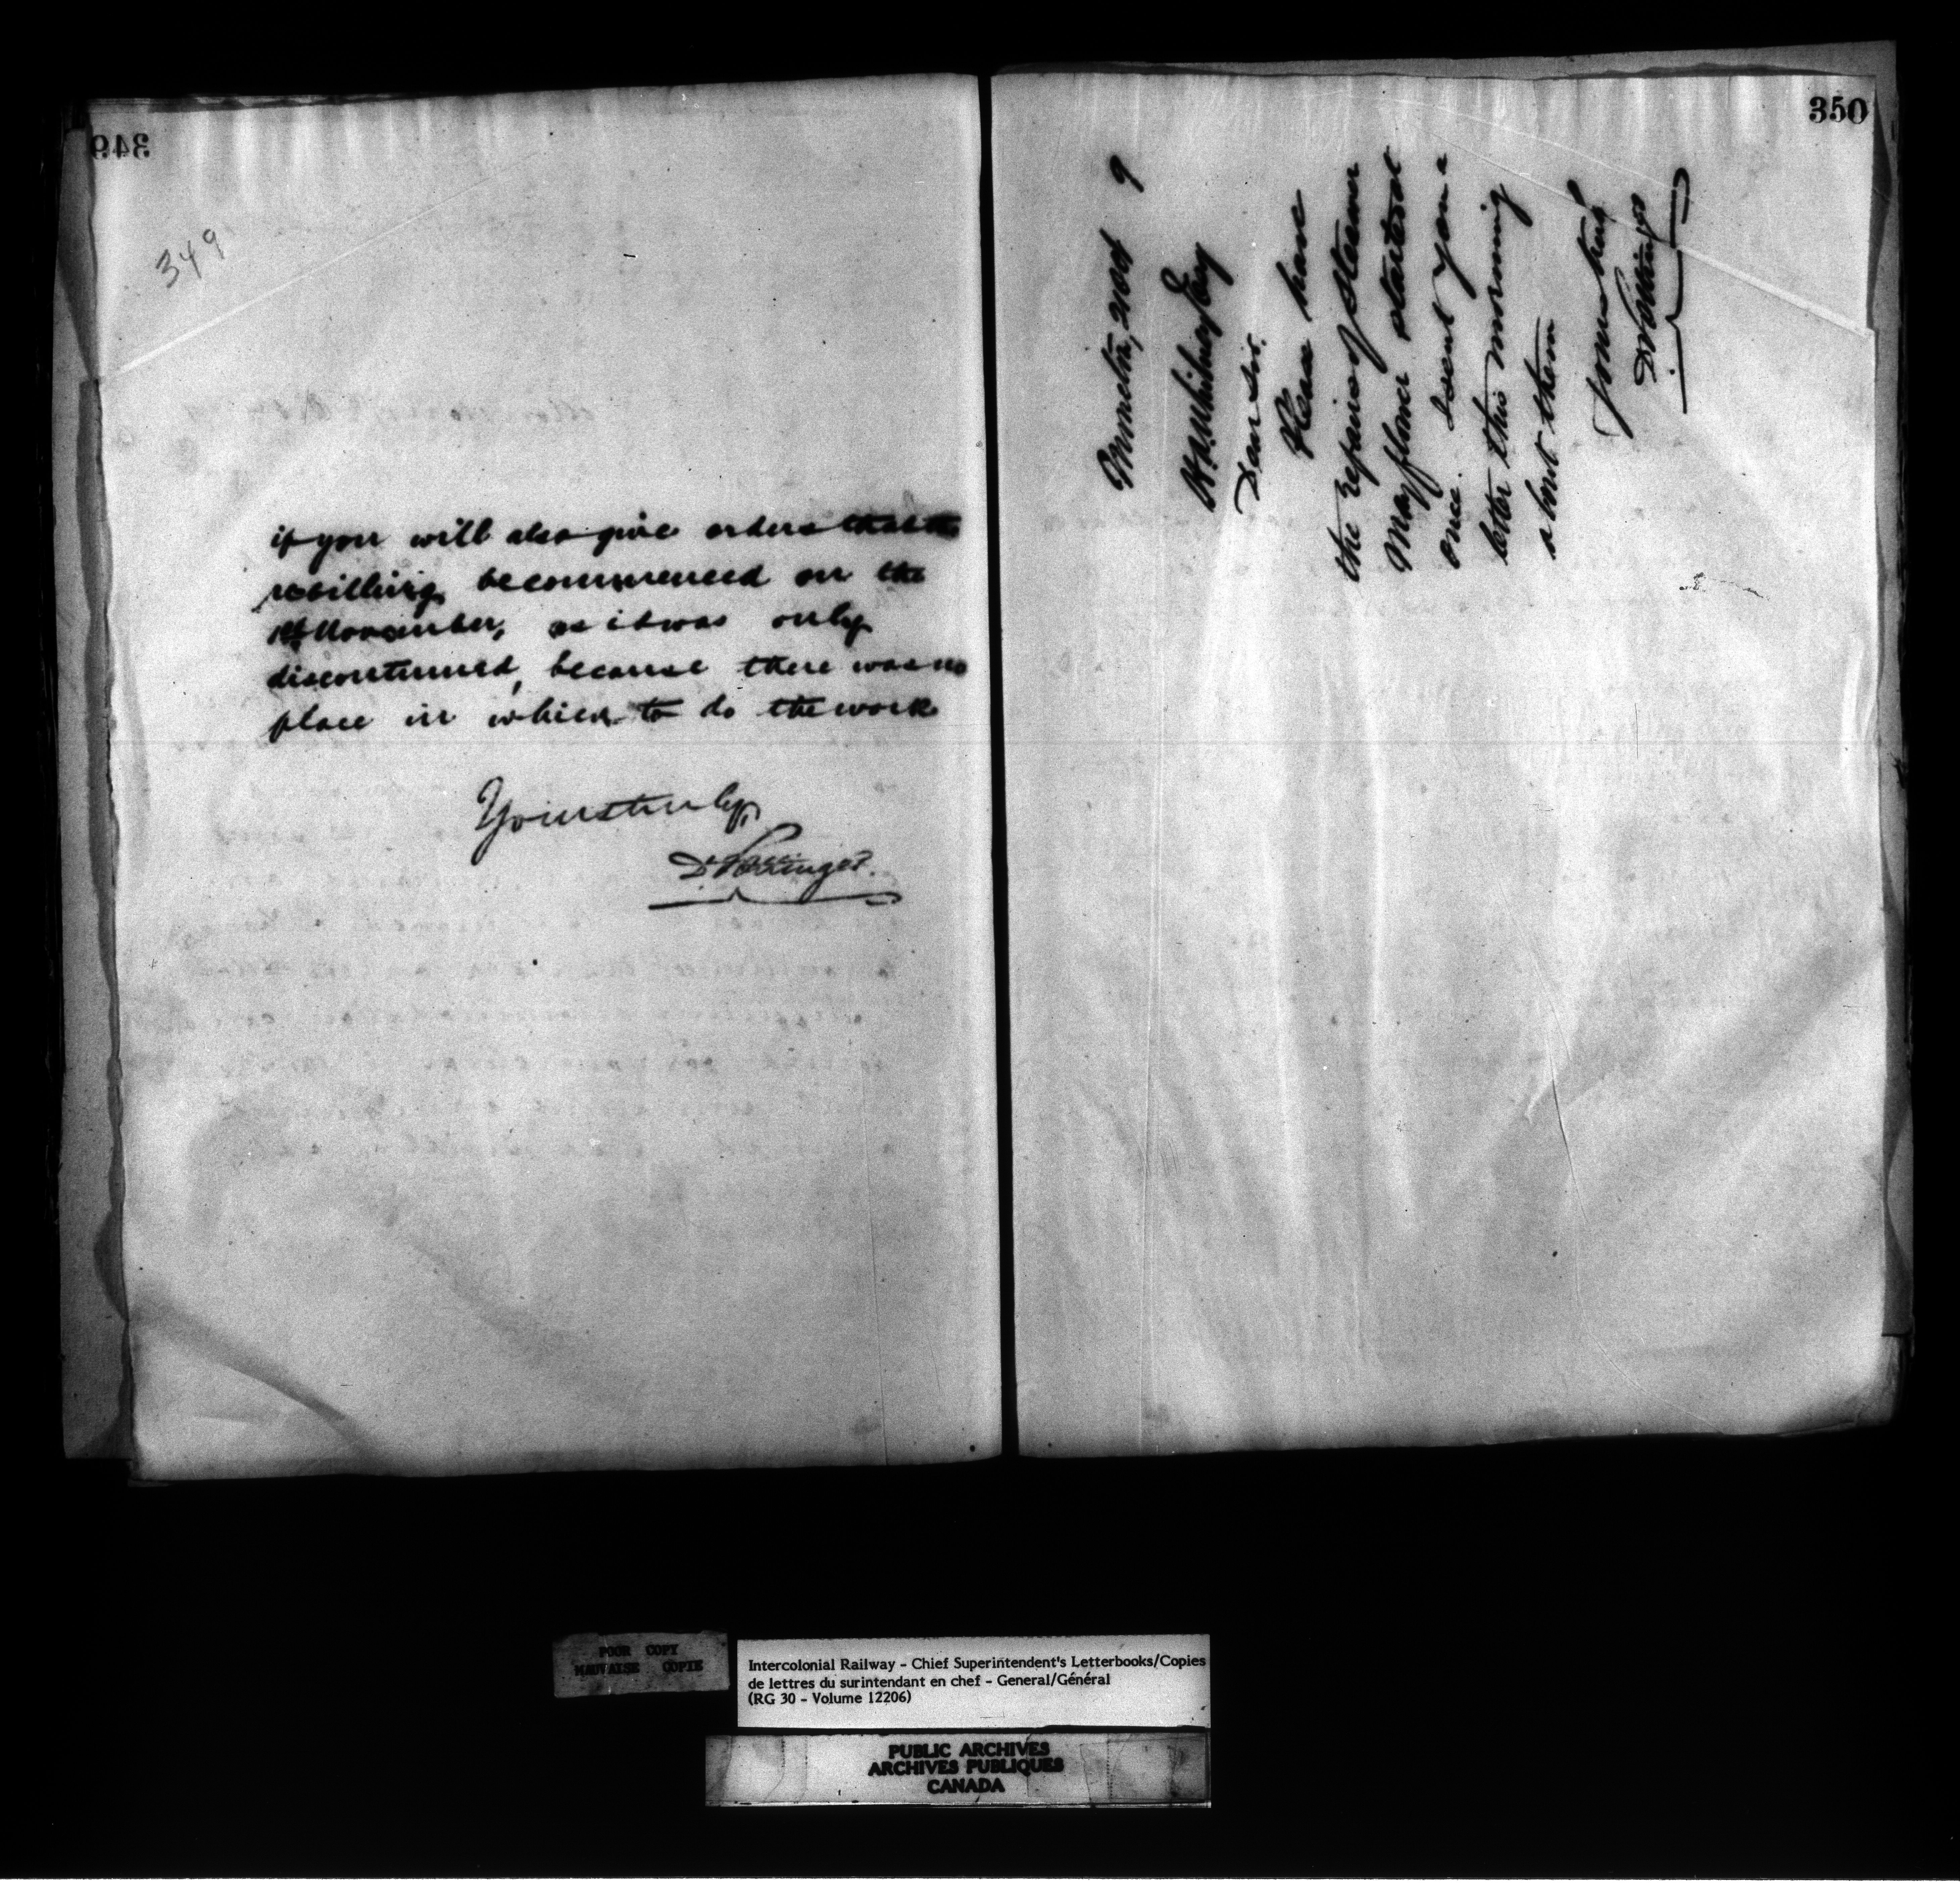 349
349
if you will also give orders that the
rebilling be commenced on the
1st November, as it was only
discontinued, because there was no
place in which to do the work
Yours truly,
D. Pottinger.
350
Moncton, 21 Oct 9
H. A. Whitney Esq
Dear Sir.
Please have
the repairs of steamer
Mayflower started at
once. I sent you a
letter this morning
about them
Yours truly
D Pottinger
POOR COPY
MAUVAISE COPIE
Intercolonial Railway - Chief Superintendent's Letterbooks/Copies
de lettres du surintendant en chef - General/Général
(RG 30 - Volume 12206)
PUBLIC ARCHIVES
ARCHIVES PUBLIQUES
CANADA